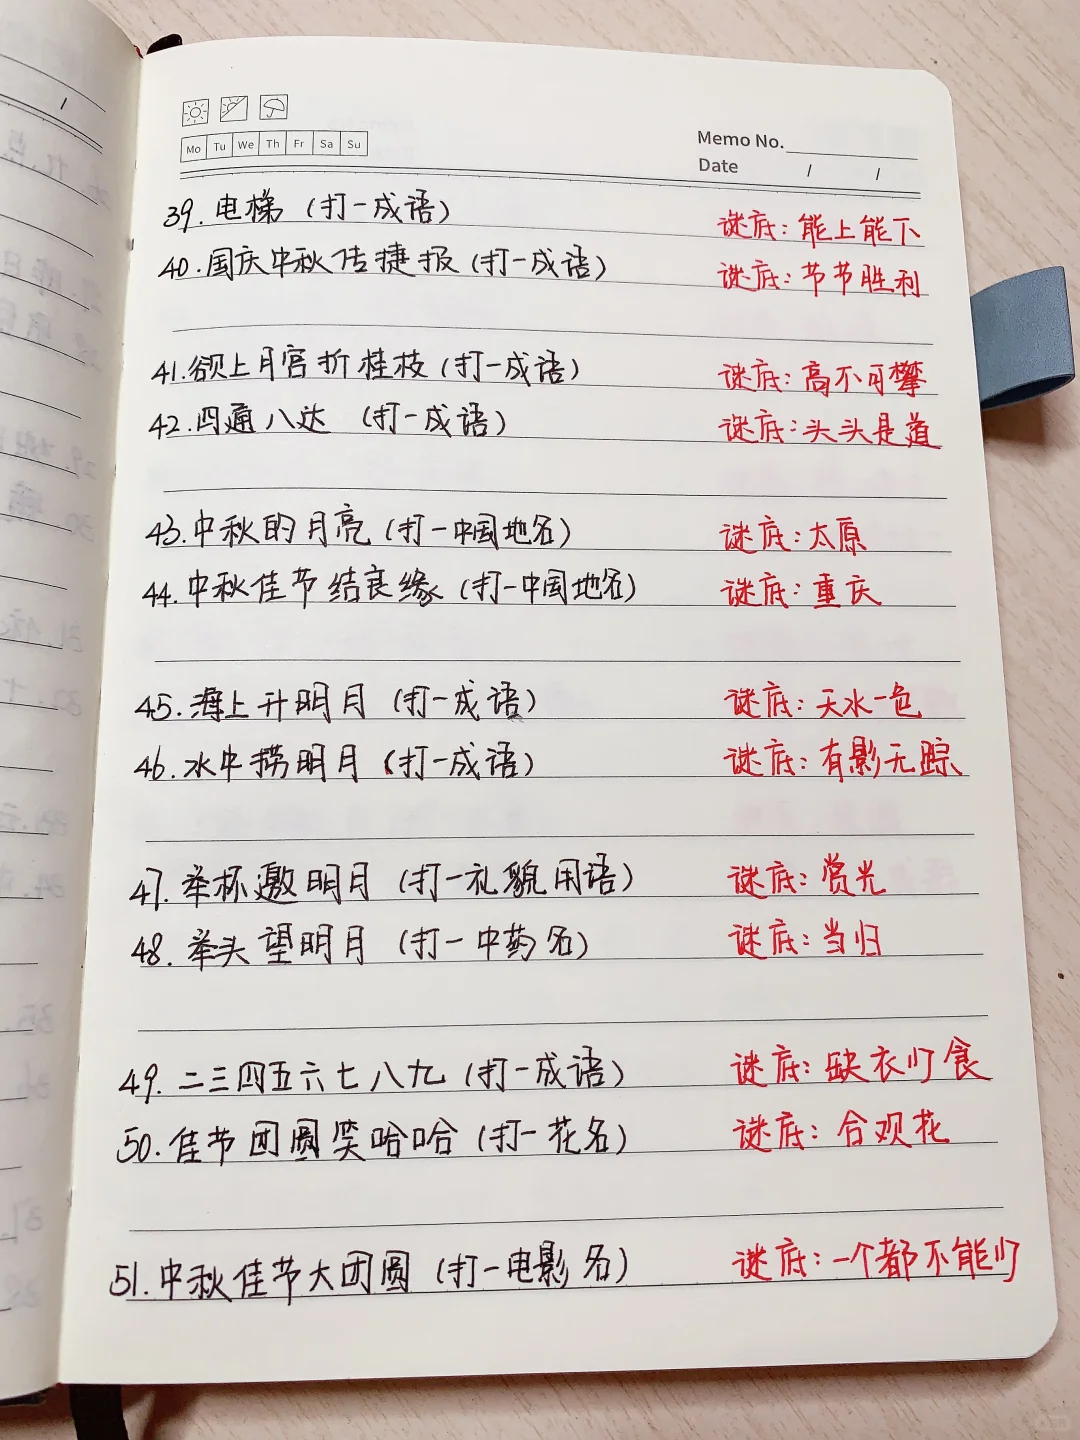 Mo Tu We Th Fr Sa Su
Memo No.
Date / /
39. 电梯（打一成语） 谜底：能上能下
40. 国庆中秋传捷报（打一成语） 谜底：节节胜利
41. 欲上月宫折桂枝（打一成语） 谜底：高不可攀
42. 四通八达（打一成语） 谜底：头头是道
43. 中秋的月亮（打一中国地名） 谜底：太原
44. 中秋佳节结良缘（打一中国地名） 谜底：重庆
45. 海上升明月（打一成语） 谜底：天水一色
46. 水中捞明月（打一成语） 谜底：有影无踪
47. 举杯邀明月（打一礼貌用语） 谜底：赏光
48. 举头望明月（打一中药名） 谜底：当归
49. 二三四五六七八九（打一成语） 谜底：缺衣少食
50. 佳节团圆笑哈哈（打一花名） 谜底：合观花
51. 中秋佳节大团圆（打一电影名） 谜底：一个都不能少